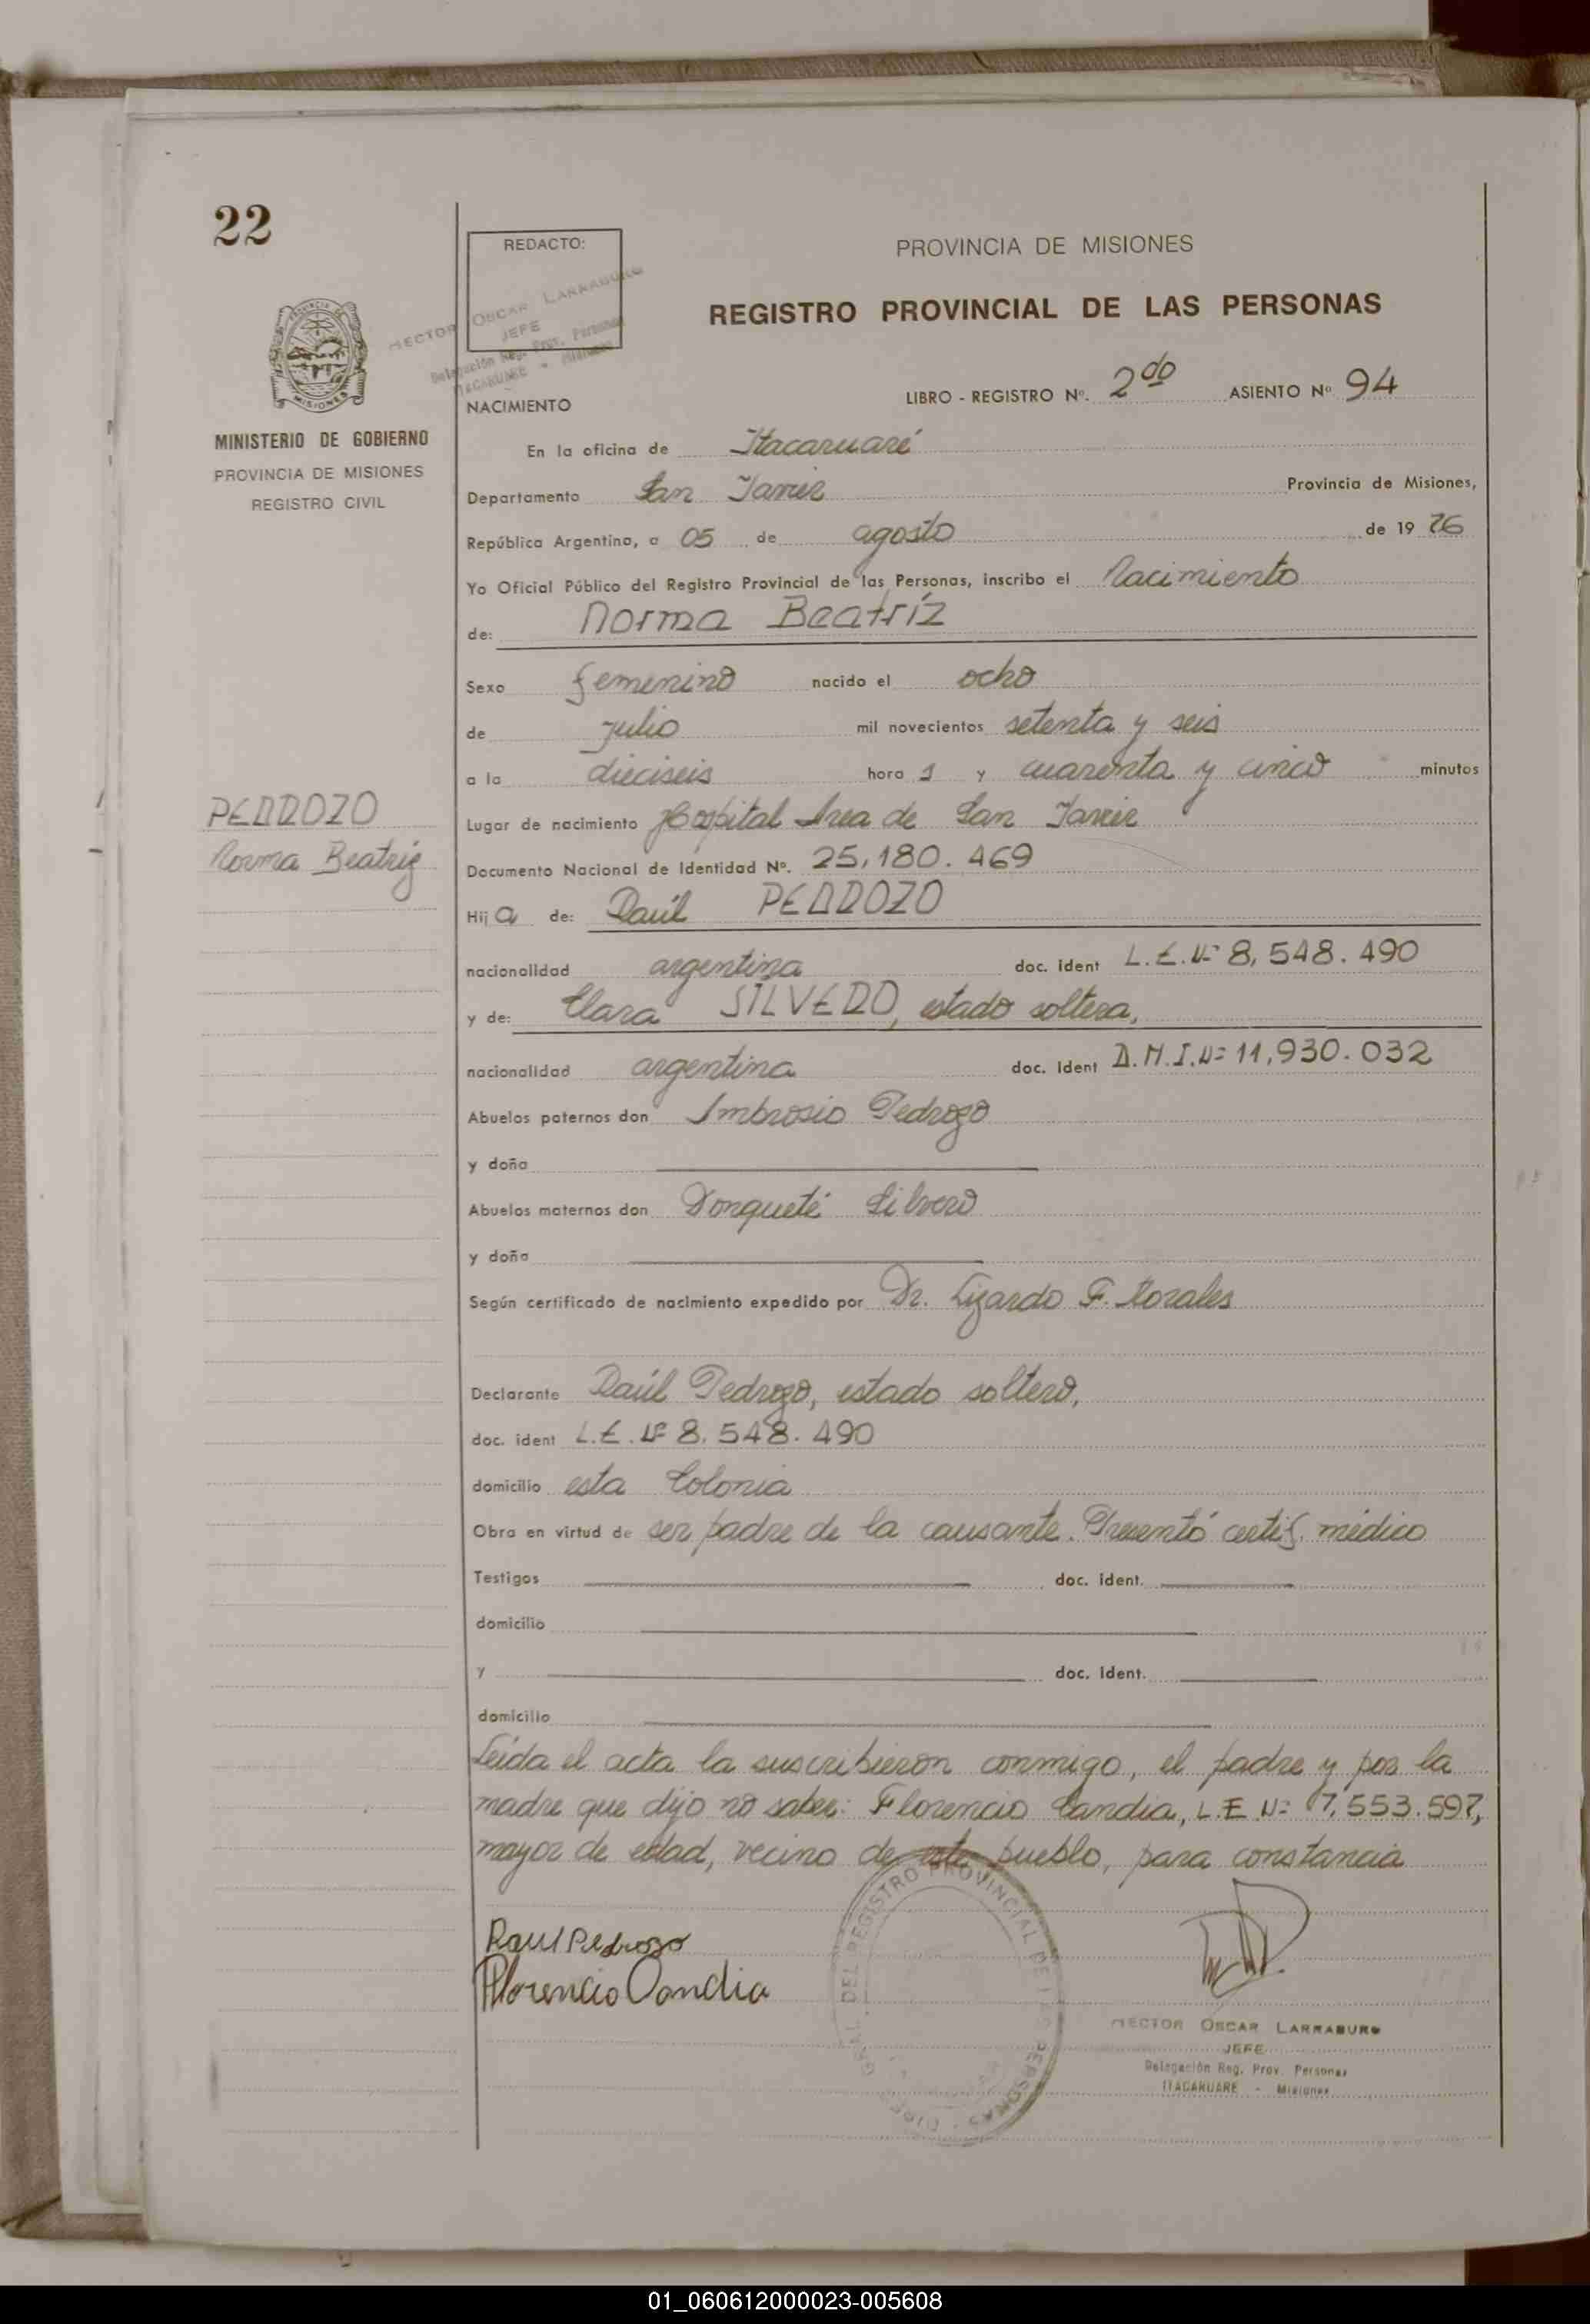 22
REDACTO:
HECTOR OSCAR LARRABURO
JEFE
Delegación Reg. Prov. Personas
ITACARUARE - Misiones
PROVINCIA DE MISIONES
REGISTRO PROVINCIAL DE LAS PERSONAS
PROVINCIA
MISIONES
MINISTERIO DE GOBIERNO
PROVINCIA DE MISIONES
REGISTRO CIVIL
NACIMIENTO
LIBRO - REGISTRO Nº. 2do ASIENTO Nº 94
En la oficina de Itacaruaré
Departamento San Javier Provincia de Misiones,
República Argentina, a 05 de agosto de 1976
Yo Oficial Público del Registro Provincial de las Personas, inscribo el Nacimiento
de: Norma Beatríz
Sexo femenino nacido el ocho
de julio mil novecientos setenta y seis
a la dieciseis hora s y cuarenta y cinco minutos
PEDROZO
Norma Beatriz
Lugar de nacimiento Hospital Area de San Javier
Documento Nacional de Identidad Nº. 25,180.469
Hija de: Raúl PEDROZO
nacionalidad argentina doc. ident L.E.Nº 8,548.490
y de: Clara SILVERO, estado soltera,
nacionalidad argentina doc. ident D.N.I.Nº 11,930.032
Abuelos paternos don Ambrosio Pedrozo
y doña
Abuelos maternos don Silvero
y doña
Según certificado de nacimiento expedido por Dr. Lizardo F. Morales
Declarante Raúl Pedrozo, estado soltero,
doc. ident L.E. Nº 8.548.490
domicilio esta Colonia
Obra en virtud de ser padre de la causante. Presentó certif. médico
Testigos doc. ident.
domicilio
y doc. ident.
domicilio
Leída el acta la suscribieron conmigo, el padre y por la
madre que dijo no saber: Florencio Candia, L.E Nº 7,553.597,
mayor de edad, vecino de este pueblo, para constancia
Raul Pedrozo
Florencio Candia
DEL REGISTRO PROVINCIAL DE LAS PERSONAS
HECTOR OSCAR LARRABURO
JEFE
Delegación Reg. Prov. Personas
ITACARUARE - Misiones
01_060612000023-005608